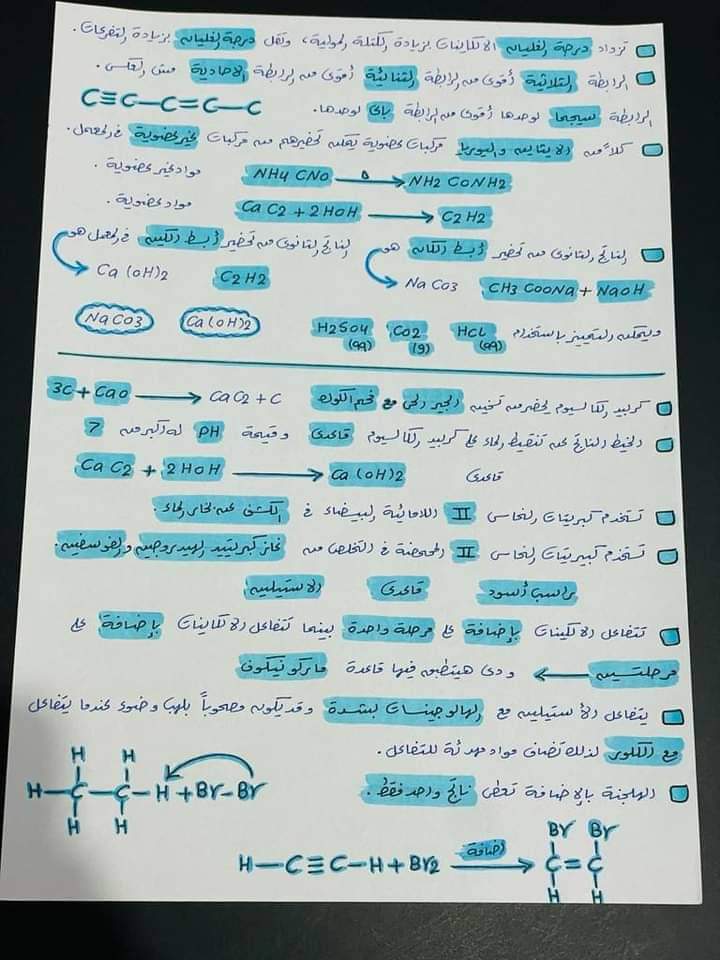 تزداد درجة الغليان الالكاينات بزيادة الكتلة المولية، وتقل درجة الغليان بزيادة التفرعات.
الرابطة الثلاثية أقوى من الرابطة الثنائية أقوى من الرابطة الاحادية مش العكس.
الرابطة سيجما لوحدها أقوى من الرابطة باى لوحدها. C≡C-C=C-C
كلاً من الايثاين واليوريا مركبات عضوية يمكن تحضيرهم من مركبات غير عضوية في المعمل.
NH4 CNO Δ→ NH2 CONH2 مواد غير عضوية.
Ca C2 + 2HOH → C2H2 مواد عضوية.
الناتج الثانوى من تحضير أبسط الكان هو
NaCO3 CH3 COONa + NaOH
الناتج الثانوى من تحضير أبسط الكاين في المعمل هو
Ca(OH)2 C2H2
ويمكن التمييز باستخدام HCL (aq) CO2 (g) H2SO4 (aq) Ca(OH)2 NaCO3
كربيد الكالسيوم يحضر من تسخين الجير الحى مع فحم الكوك 3C + CaO → CaC2 + C
الخيط الناتج عن تنقيط الماء على كربيد الكالسيوم قاعدى وقيمة PH له أكبر من 7
CaC2 + 2HOH → Ca(OH)2 قاعدى
تستخدم كبريتات النحاس II اللامائية البيضاء في الكشف عن بخار الماء.
تستخدم كبيريتات النحاس II المحمضة في التخلص من غاز كبرتييد الهيدروجين والفوسفين.
راسب أسود قاعدى الاستيلين
تتفاعل الالكينات بإضافة على مرحلة واحدة بينما تتفاعل الالكاينات بإضافة على
مرحلتين ← ودى هيتطبق فيها قاعدة ماركونيكوف
يتفاعل الأستيلين مع الهالوجينات بشدة وقد يكون مصحوباً بلهب وضوء عندما يتفاعل
مع الكلور لذلك تضاف مواد مهدئة للتفاعل.
الهلجنة بالإضافة تعطى ناتج واحد فقط.
H H
H-C-C-H + Br-Br
H H
H-C≡C-H + Br2 اضافة→
Br Br
C=C
H H